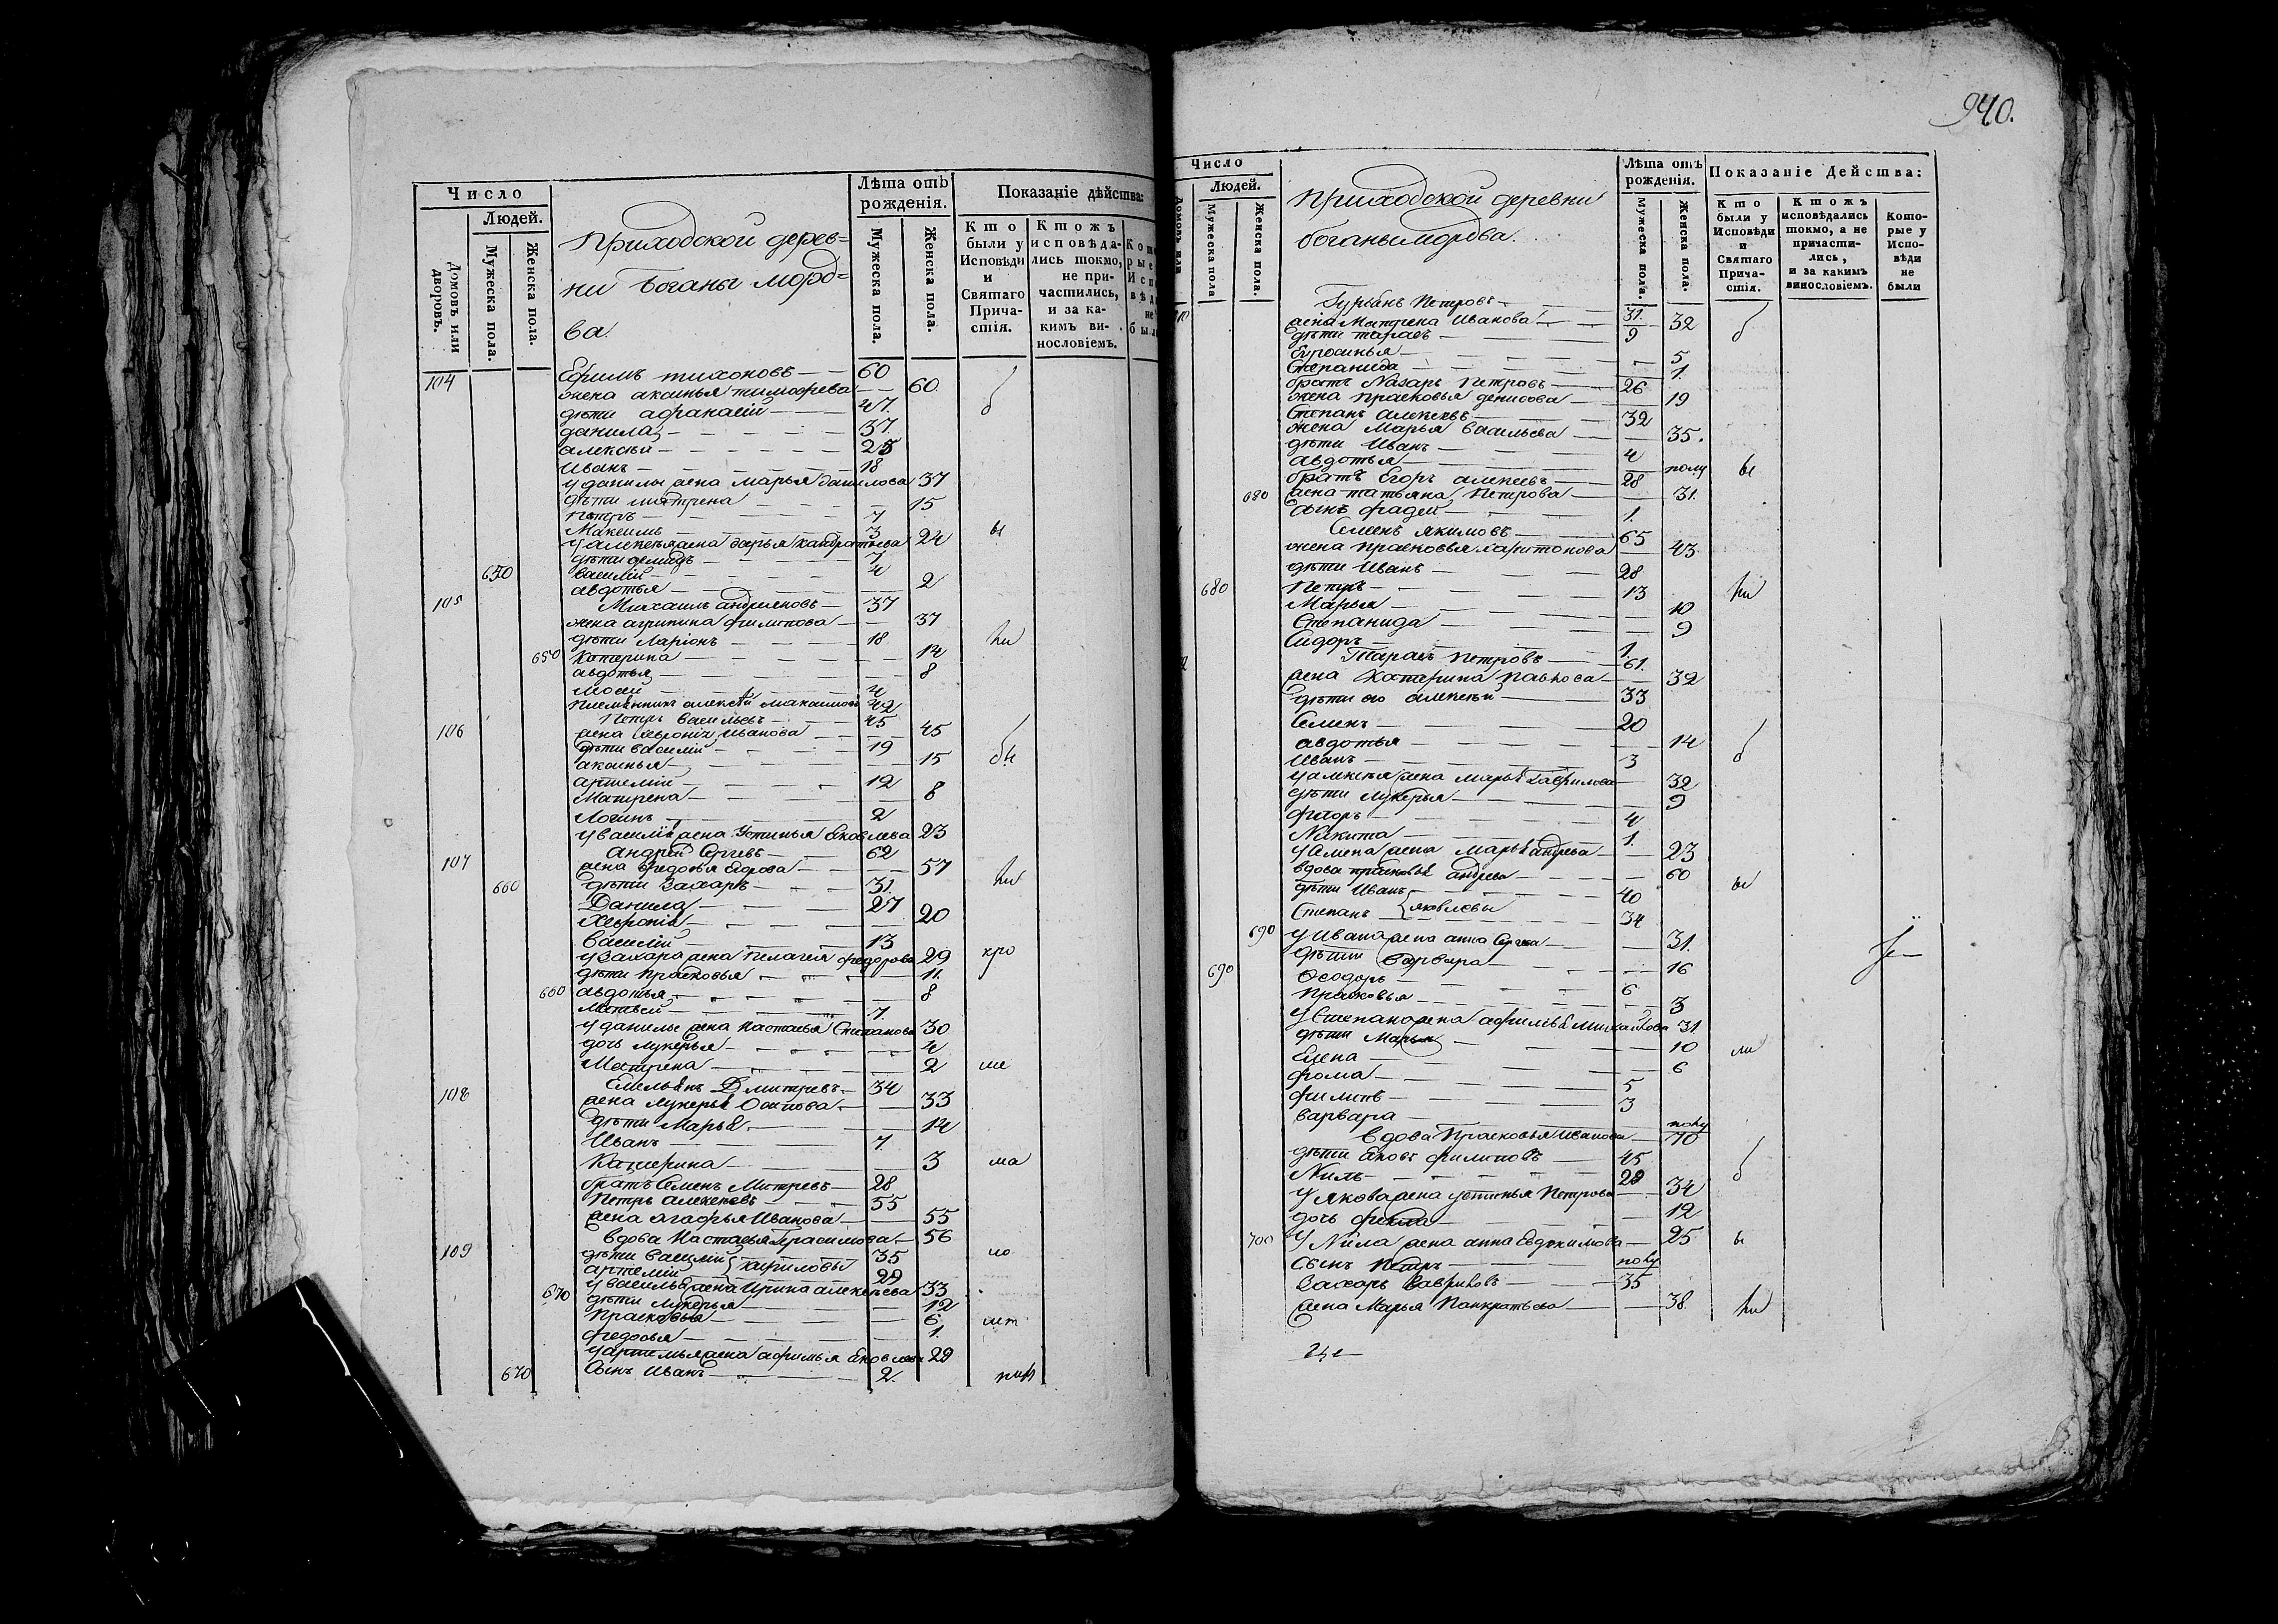 Число
Людей.
Домовъ или дворовъ.
Мужеска пола.
Женска пола.
Приходской дерев=
ни Боганы морд=
ва.
Лѣта отъ рожденія.
Мужеска пола.
Женска пола.
Показаніе дѣйства:
Кто были у Исповѣди и Святаго Прича-стія.
Ктожъ исповѣда-лись токмо, не при-частились, и за ка-кимъ ви-нословіемъ.
104 Ефимъ тихоновъ 60
жена аксинья тимофѣева 60
дѣти афанасій 47
данила 37
алексѣй 25
Иванъ 18
у данилы жена марья данилова 37
дѣти матрена 15
Петръ 7
Максимъ 3
у алексѣя жена дарья кандратьева 24
дѣти демидъ 7
650 василій 4
авдотья 2
105 Михаилъ андряновъ 37
жена агрипина филипова 37
дѣти Ларіонъ 18
650 Катерина 14
авдотья 8
Мосей 4
племянникъ алексѣй максимовъ 42
106 Петръ васильевъ 45
жена Хевронія Иванова 45
дѣти василій 19
аксинья 15
артемій 12
Матрена 8
Логинъ 2
у василія жена Устинья Яковлева 23
107 андрей Сергѣевъ 62
жена Ѳедосья Егорова 57
660 дѣти Захаръ 31
Данила 27
Хевронія 20
василій 13
у Захара жена пелагея федорова 29
дѣти Прасковья 11
660 авдотья 8
Матвей 7
у данилы жена настасья Степанова 30
дочь лукерья 4
Матрена 2
108 Емельянъ Дмитревъ 34
жена лукерья Осипова 33
дѣти Марья 14
Иванъ 7
Катерина 3
братъ Семенъ Митревъ 28
Петръ алексѣевъ 55
жена агафья Иванова 55
109 вдова Настасья Герасимова 56
дѣти василій 35
артемій } кириловы 29
670 у василья жена Ирина алексѣева 33
дѣти лукерья 12
Прасковья 6
федосья 1
у артемья жена афимья Яковлева 29
670 сынъ Иванъ 2
940.
Число
Людей.
Мужеска пола
Женска пола.
Приходской деревни
боганы мордва.
Лѣта отъ рожденія.
Мужеска пола.
Женска пола.
Показаніе Действа:
Кто были у Исповѣди и Святаго Прича-стія.
Ктожъ исповѣдались токмо, а не причасти-лись, и за какимъ винословіемъ.
Кото-рые у Испо-вѣди не были
Гурьянъ Петровъ 31
жена Матрена Иванова 32
дѣти тарасъ 9
Ефросинья 5
Степанида 1
братъ Назаръ Петровъ 26
жена Прасковья денисова 19
Степанъ алексѣевъ 32
жена Марья васильева 35
дѣти Иванъ 4
авдотья полу
братъ Егоръ алексѣевъ 28
680 жена татьяна Петрова 31
сынъ фадей 1
Семенъ якимовъ 65
жена Прасковья харитонова 43
дѣти Иванъ 28
680 Петръ 13
Марья 10
Степанида 9
Сидоръ 1
Тарасъ Петровъ 61
жена Катерина Павлова 32
дѣти его алексѣй 33
Семенъ 20
авдотья 14
Иванъ 3
у алексѣя жена марья Гаврилова 32
дѣти Лукерья 9
фиторъ 4
Никита 1
у Семена жена марья андреева 23
вдова прасковья андреева 60
дѣти Иванъ 40
Степанъ } яковлевы 34
690 у Ивана жена анна Сергѣева 31
дѣти варвара 16
690 Ѳеодоръ 6
Прасковья 3
у Степана жена афимья михайлова 31
дѣти Марья 10
Елена 6
фома 5
филипъ 3
варвара полу
вдова Прасковья иванова 70
дѣти Яковъ филиповъ 45
Нилъ 29
у якова жена устинья Петрова 34
дочь фекла 12
700 У Нила жена анна Евдокимова 25
сынъ Петръ полу
Захаръ Гавриловъ 35
жена Марья Панкратьева 38